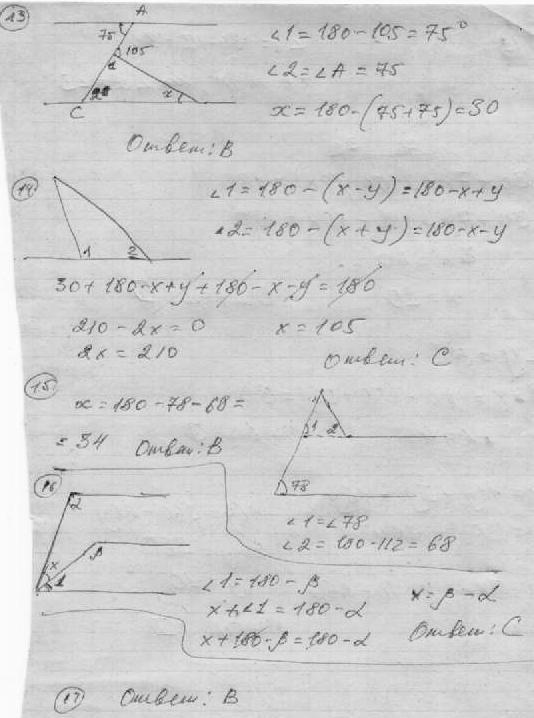 13
A
75
105
1
C
2
x
∠1 = 180 - 105 = 75°
∠2 = ∠A = 75
x = 180 - (75+75) = 30
Ответ: В
14
1 2
∠1 = 180 - (x - y) = 180 - x + y
∠2 = 180 - (x + y) = 180 - x - y
30 + 180 - x + y + 180 - x - y = 180
210 - 2x = 0
2x = 210
x = 105
Ответ: С
15
x = 180 - 78 - 68 =
= 34 Ответ: В
1 2
78
∠1 = ∠78
∠2 = 180 - 112 = 68
16
α
β
x
1
∠1 = 180 - β
x + ∠1 = 180 - α
x + 180 - β = 180 - α
x = β - α
Ответ: С
17 Ответ: В